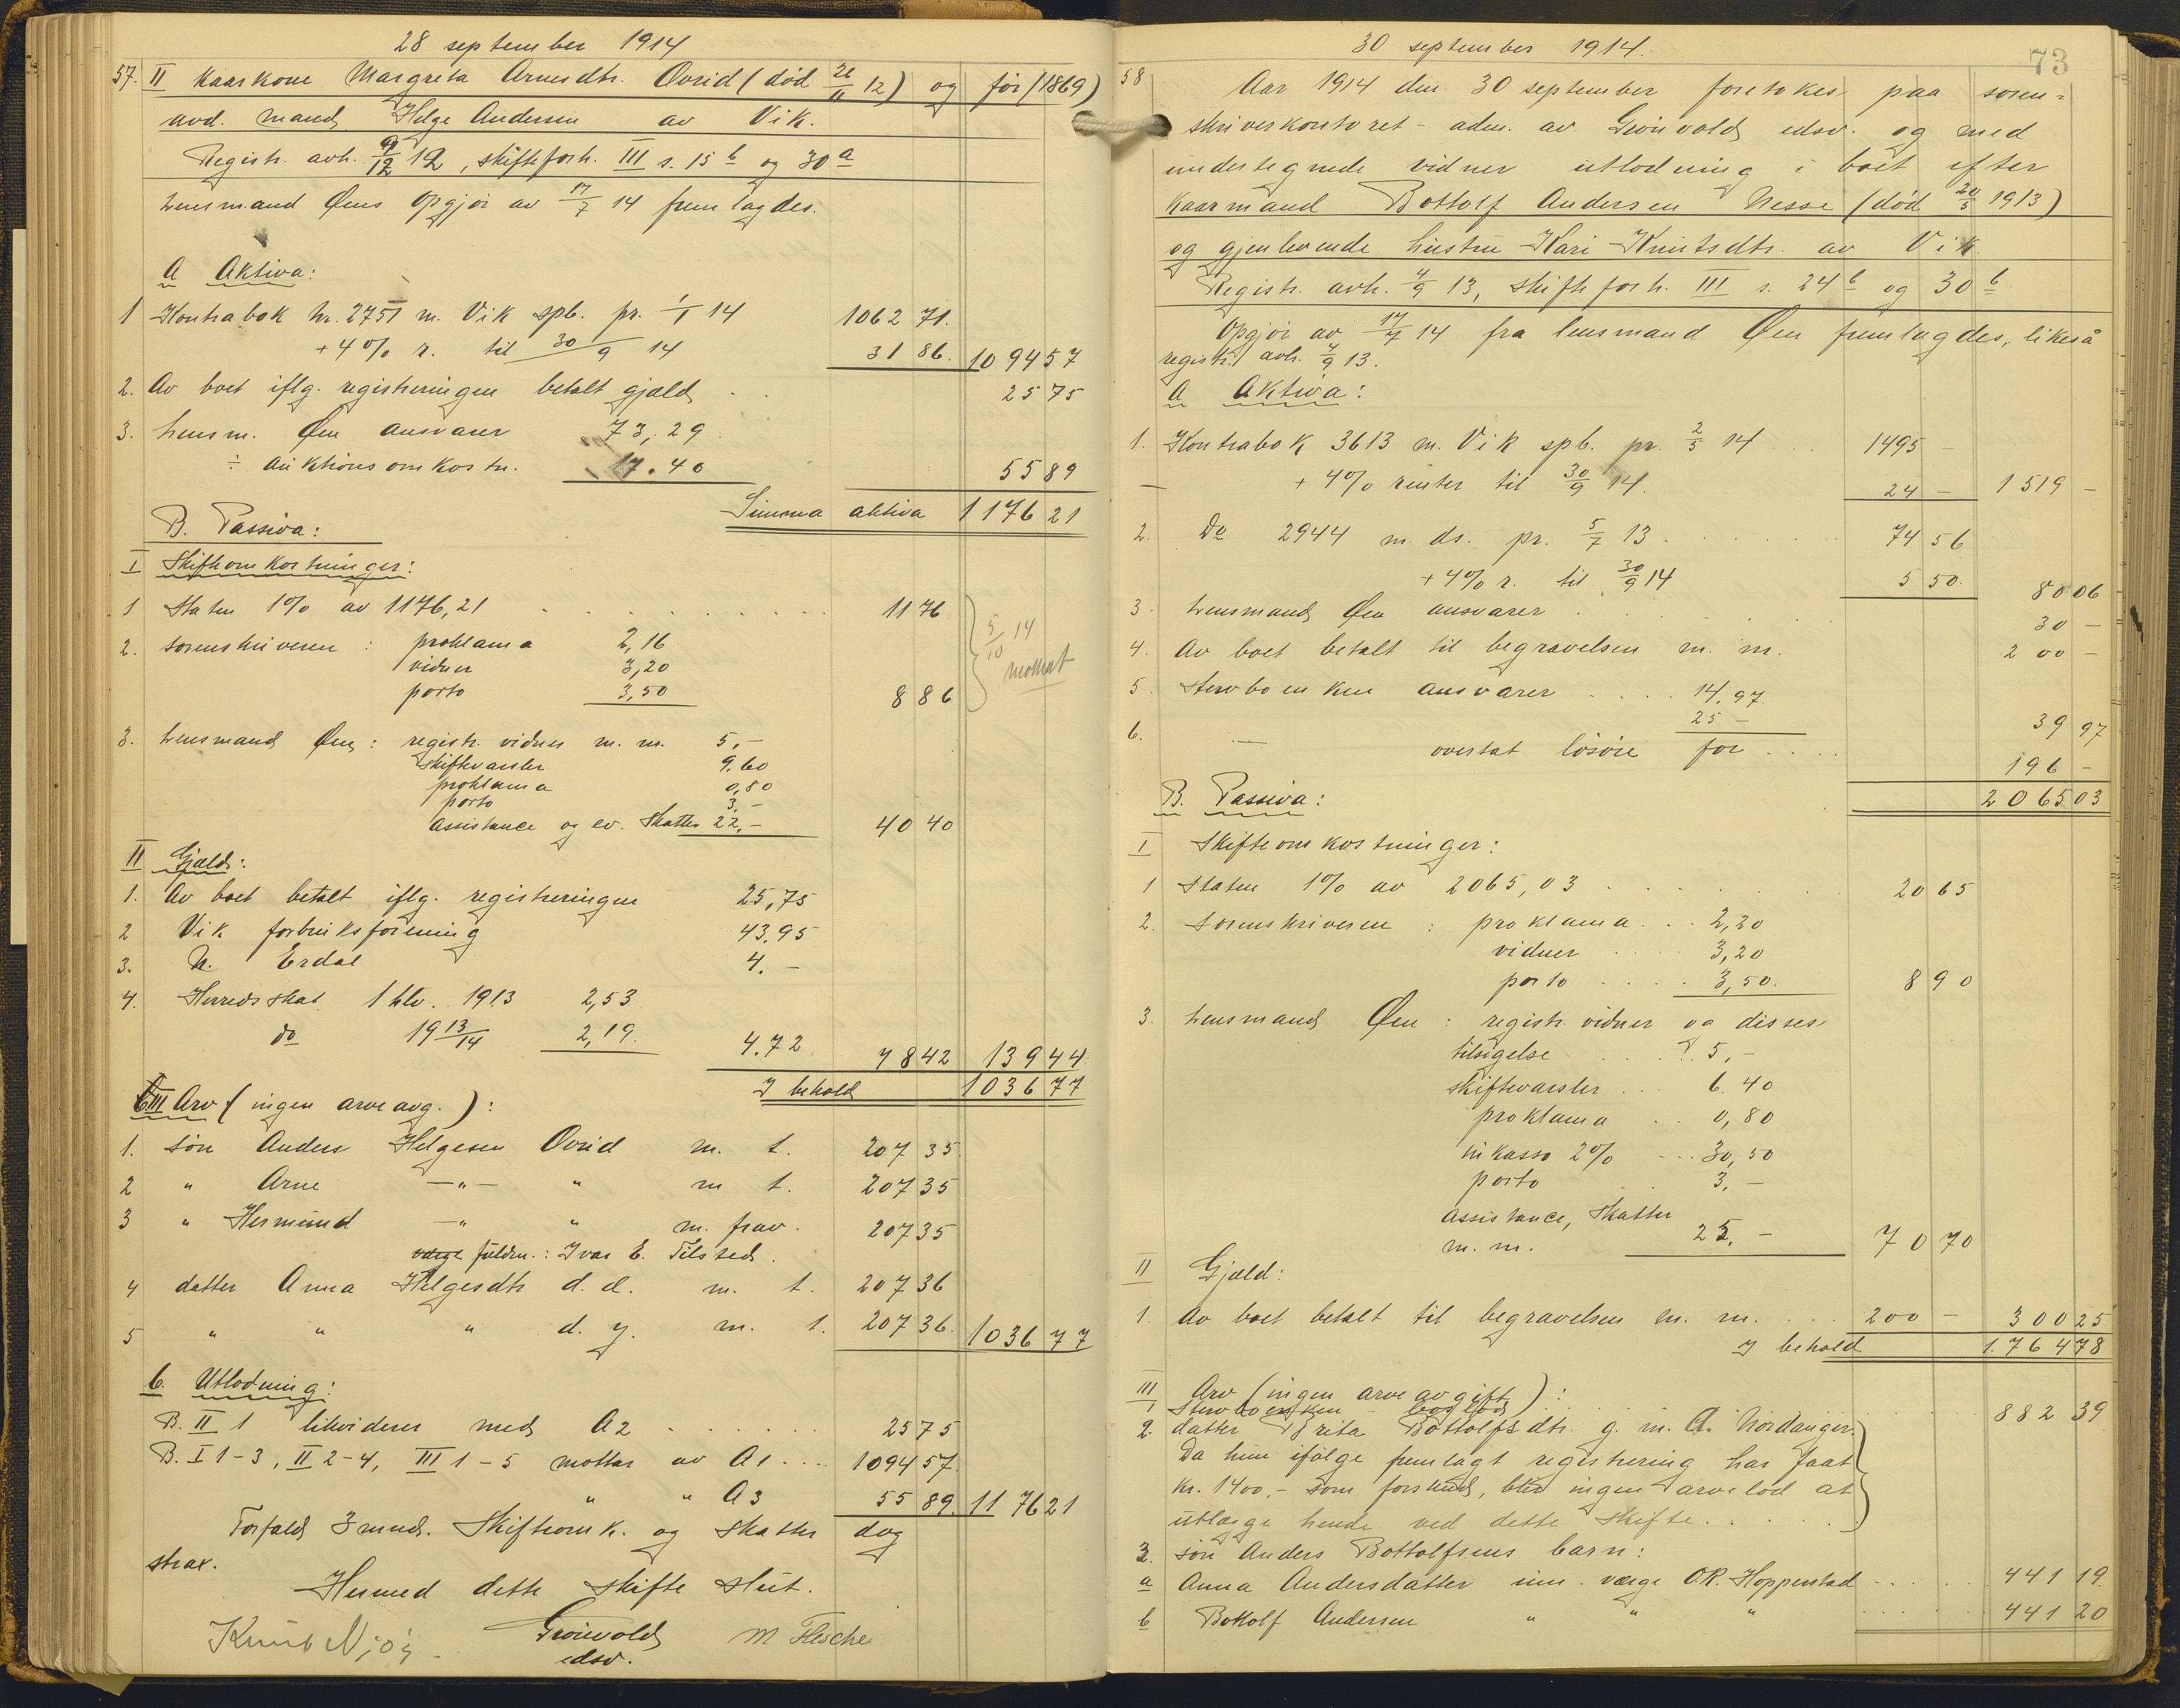 28 september 1914
57. II Kaarkone Margreta Arnesdtr. Ovrid (død 26/11 12) og før (1869)
avd. mand Helge Andersen av Vik.
Registr. avh. 9/12 12, skifteforh. III s. 15 b og 30 a
Lensmand Øens opgjør av 17/7 14 fremlagdes.
A Aktiva:
1 Kontrabok nr. 2751 m. Vik spb. pr. 1/1 14 1062 71.
+4% r. til 30/9 14 31 86. 1094 57
2. Av boet iflg. registreringen betalt gjeld . . 25 75
3. Lensm. Øen ansvarer 73,29
÷ auktionsomkostn. 17.40 55 89
Summa aktiva 1176 21
B. Passiva:
I Skifteomkostninger:
1 Staten 1% av 1176,21 . . . . . . . . 11 76
2. sorenskriveren : proklama 2,16
vidner 3,20
porto 3,50 8 86
5/10 14
mottat
3. Lensmand Øen : registr. vidner m. m. 5,-
skiftevarsler 9.60
proklama 0,80
porto 3,-
assistance og ev. skatter 22,- 40 40
II Gjæld:
1. Av boet betalt iflg. registreringen 25,75
2 Vik forbruksforening 43.95
3. N. Erdal 4.-
4. Herredsskat 1 hlv. 1913 2,53
do 1913/14 2,19. 4.72 78 42 139 44
I behold 1036 77
III Arv (ingen arveavg.):
1. søn Anders Helgesen Ovrid m. t. 207 35.
2 " Arne —"— " m t. 207 35
3 " Hermund —" " m. frav. 207 35
værge fuldm.: Ivar E. Tilsted.
4 datter Anna Helgesdtr d. æ. m. t. 207 36
5 " " " d. y. m. t. 207 36. 1036 77
C. Utlodning:
B. II 1 likvideres med A2 . . . . . . 25 75
B. I 1-3, II 2-4, III 1-5 mottar av A1 . . . . 1094 57.
" " A3 55 89. 1176 21
Forfald 3 mnd. Skifteomk. og skatter dog
strax.
Hermed dette skifte slut.
Knut Njøs. Grönvold M Flesche
edsv.
30 september 1914.
73
58 Aar 1914 den 30 september foretokes paa soren=
skriverkontoret - adm. av Grönvold edsv. og med
undertegnede vidner utlodning i boet efter
Kaarmand Bottolf Andersen Nesse (død 20/5 1913)
og gjenlevende hustru Kari Knutsdtr. av Vik
Registr. avh. 4/9 13, skifteforh. III s. 24 b og 30 b
Opgjør av 17/7 14 fra lensmand Øen fremlagdes, likeså
registr. avh. 4/9 13.
A Aktiva:
1. Kontrabok 3613 m. Vik spb. pr. 2/5 14 . . . 1495 -
— + 4% renter til 30/9 14. 24 - 1519 -
2. Do 2944 m. ds. pr. 5/7 13 . . . . . . . 74 56
+ 4% r. til 30/9 14 5 50. 80 06
3. Lensmand Øen ansvarer . . . . . . . 30 -
4. Av boet betalt til begravelsen m. m. 200 -
5. Stervboenken ansvarer . . . . 14,97.
25 - 39 97
6. — overtat løsøre for . . . . 196 -
2065 03
B. Passiva:
I Skifteomkostninger:
1 Staten 1% av 2065,03 . . . . . . . 20 65
2. Sorenskriveren : proklama . . . 2,20
vidner . . . . 3,20
porto . . . . . 3,50. 8 90
3. Lensmand Øen : registr. vidner og disses
tilsigelse . . . . . . 5,-
skiftevarsler . . . 6.40
proklama . . 0,80
inkasso 2% - . . 30,50
porto 3,-
assistance, skatter
m. m. 25,- 70 70
II Gjæld:
1. Av boet betalt til begravelsen m. m. . . . 200 - 300 25
I behold 1.764 78
III Arv (ingen arveavgift):
1 Stervboenken boslod . . . . . . . 882 39
2. datter Brita Bottolfsdtr. g. m. A. Nordanger.
Da hun ifølge fremlagt registrering har faat
kr. 1400,- som forskud, blev ingen arvelod at
utlægge hende ved dette skifte . . . . .
3. søn Anders Bottolfsens barn:
a Anna Andersdatter um. værge O.R. Hoppestad . . . . . . 441 19.
b Bottolf Andersen " " " . . . . . . 441 20